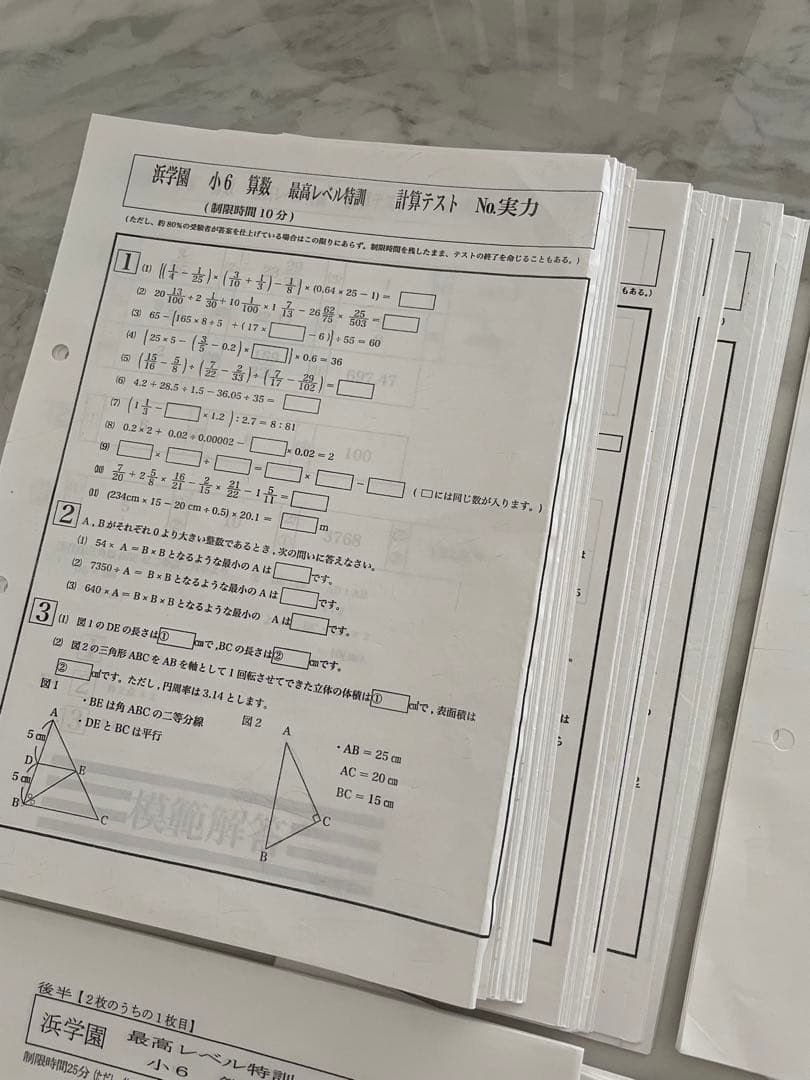 浜学園 小6 算数 最高レベル特訓 計算テスト No.実力
(制限時間10分)
(ただし、約80%の受験者が答案を仕上げている場合はこの限りにあらず。制限時間を残したまま、テストの終了を命じることもある。)
1 (1) {(1/4 − 1/25) × (3/10 + 1/3) − 1/8} × (0.64 × 25 − 1) = □
(2) 20 13/100 ÷ 2 1/30 + 10 1/100 × 1 7/13 − 26 62/75 × 25/503 = □
(3) 65 − {165 × 8 ÷ 5 + (17 × □ − 6)} ÷ 55 = 60
(4) {25 × 5 − (3/5 − 0.2) × □} × 0.6 = 36
(5) (15/16 − 5/8) ÷ (7/22 − 2/33) ÷ (7/17 − 29/102) = □
(6) 4.2 + 28.5 ÷ 1.5 − 36.05 ÷ 35 = □
(7) (1 1/3 − □ × 1.2) : 2.7 = 8 : 81
(8) 0.2 × 2 + 0.02 ÷ 0.00002 − □ × 0.02 = 2
(9) □ × □ + □ = □ × □ − □ (□には同じ数が入ります。)
(10) 7/20 ÷ 2 5/8 × 16/21 − 2/15 × 21/22 − 1 5/11 = □
(11) (234cm × 15 − 20 cm ÷ 0.5) × 20.1 = □ m
2 A, Bがそれぞれ0より大きい整数であるとき, 次の問いに答えなさい。
(1) 54 × A = B × B となるような最小の A は □ です。
(2) 7350 ÷ A = B × B となるような最小の A は □ です。
(3) 640 × A = B × B × B となるような最小の A は □ です。
3 (1) 図1のDEの長さは ① cmで, BCの長さは ② cmです。
(2) 図2の三角形ABCをABを軸として1回転させてできた立体の体積は ① cm³で, 表面積は
② cm²です。ただし, 円周率は3.14とします。
図1
・BEは角ABCの二等分線
・DEとBCは平行
A
5cm
D
E
5cm
B
C
図2
A
B
C
・AB = 25 cm
AC = 20 cm
BC = 15 cm
模範解答
もある。)
697.47
100
3768
後半【2枚のうちの1枚目】
浜学園 最高レベル特訓
小6
制限時間25分